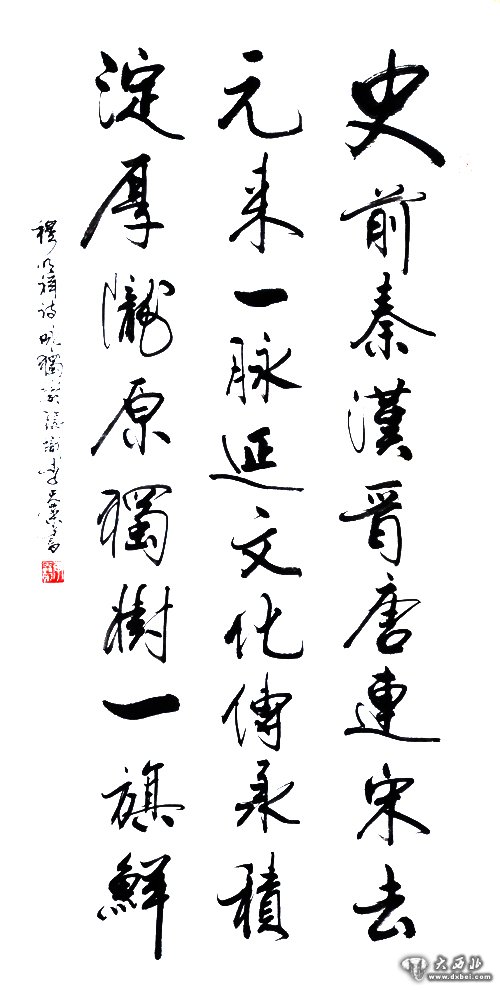 史前秦漢晉唐連宋去
元来一脉延文化傳承積
淀厚隴原獨樹一旗鮮
穆明祥诗
大西北
www.dxbei.com